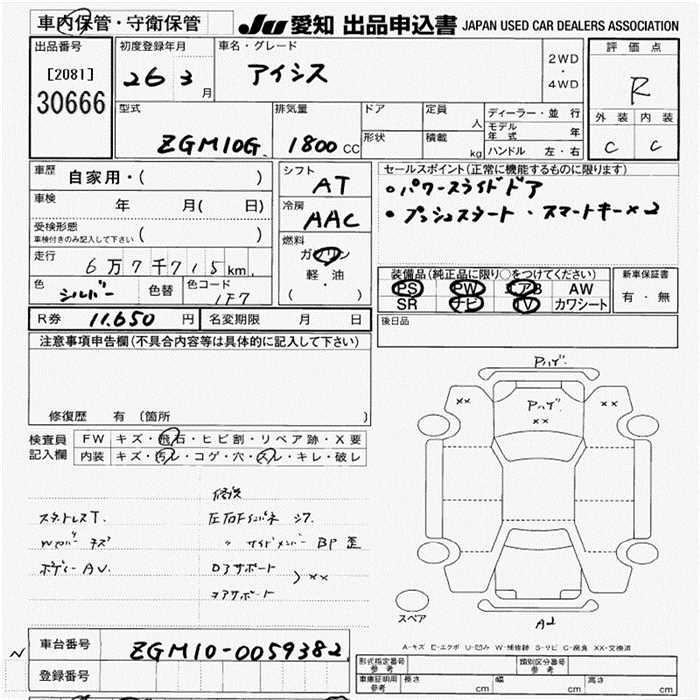 車内保管・守衛保管
JU 愛知 出品申込書 JAPAN USED CAR DEALERS ASSOCIATION
出品番号
[2081]
30666
初度登録年月
26 3 月
車名・グレード
アイシス
2WD
・
4WD
評価点
R
外装 内装
C C
型式
ZGM10G
排気量
1800 CC
ドア
形状
定員
人
積載
kg
ディーラー・並行
モデル年式 年
ハンドル 左・右
車歴
自家用・( )
車検
年 月( 日)
受検形態
車検付きのみ記入して下さい ( )
走行
6万7千715km
色
シルバー
色替
色コード
1F7
シフト
AT
冷房
AAC
燃料
ガソリン
軽・油
( )
セールスポイント(正常に機能するものに限ります)
・パワースライドドア
・プッシュスタート ・スマートキー×2
装備品(純正品に限り○をつけてください)
PS PW エアB AW
SR ナビ TV カワシート
新車保証書
有・無
後日品
R券 11,650 円
名変期限 月 日
注意事項申告欄(不具合内容等は具体的に記入して下さい)
修復歴 有(箇所 )
検査員
記入欄
FW キズ・飛石・ヒビ割・リペア跡・X要
内装 キズ・汚レ・コゲ・穴・スレ・キレ・破レ
修復
スタットレスT.
Wカバー キズ
ボディーAU.
〃 サイドメンバー BP 歪
ロアサポート
コアサポート
〉××
Pハゲ.
××
Pハゲ.
××
××
スペア
A2
A-キズ E-エクボ U-凹み W-補修跡 S-サビ C-腐食 XX-交換済
車台番号
ZGM10-0059382
登録番号
型式指定番号
参考
類別区分番号
参考
車庫証明用
参考
長さ cm
幅 cm
高さ cm